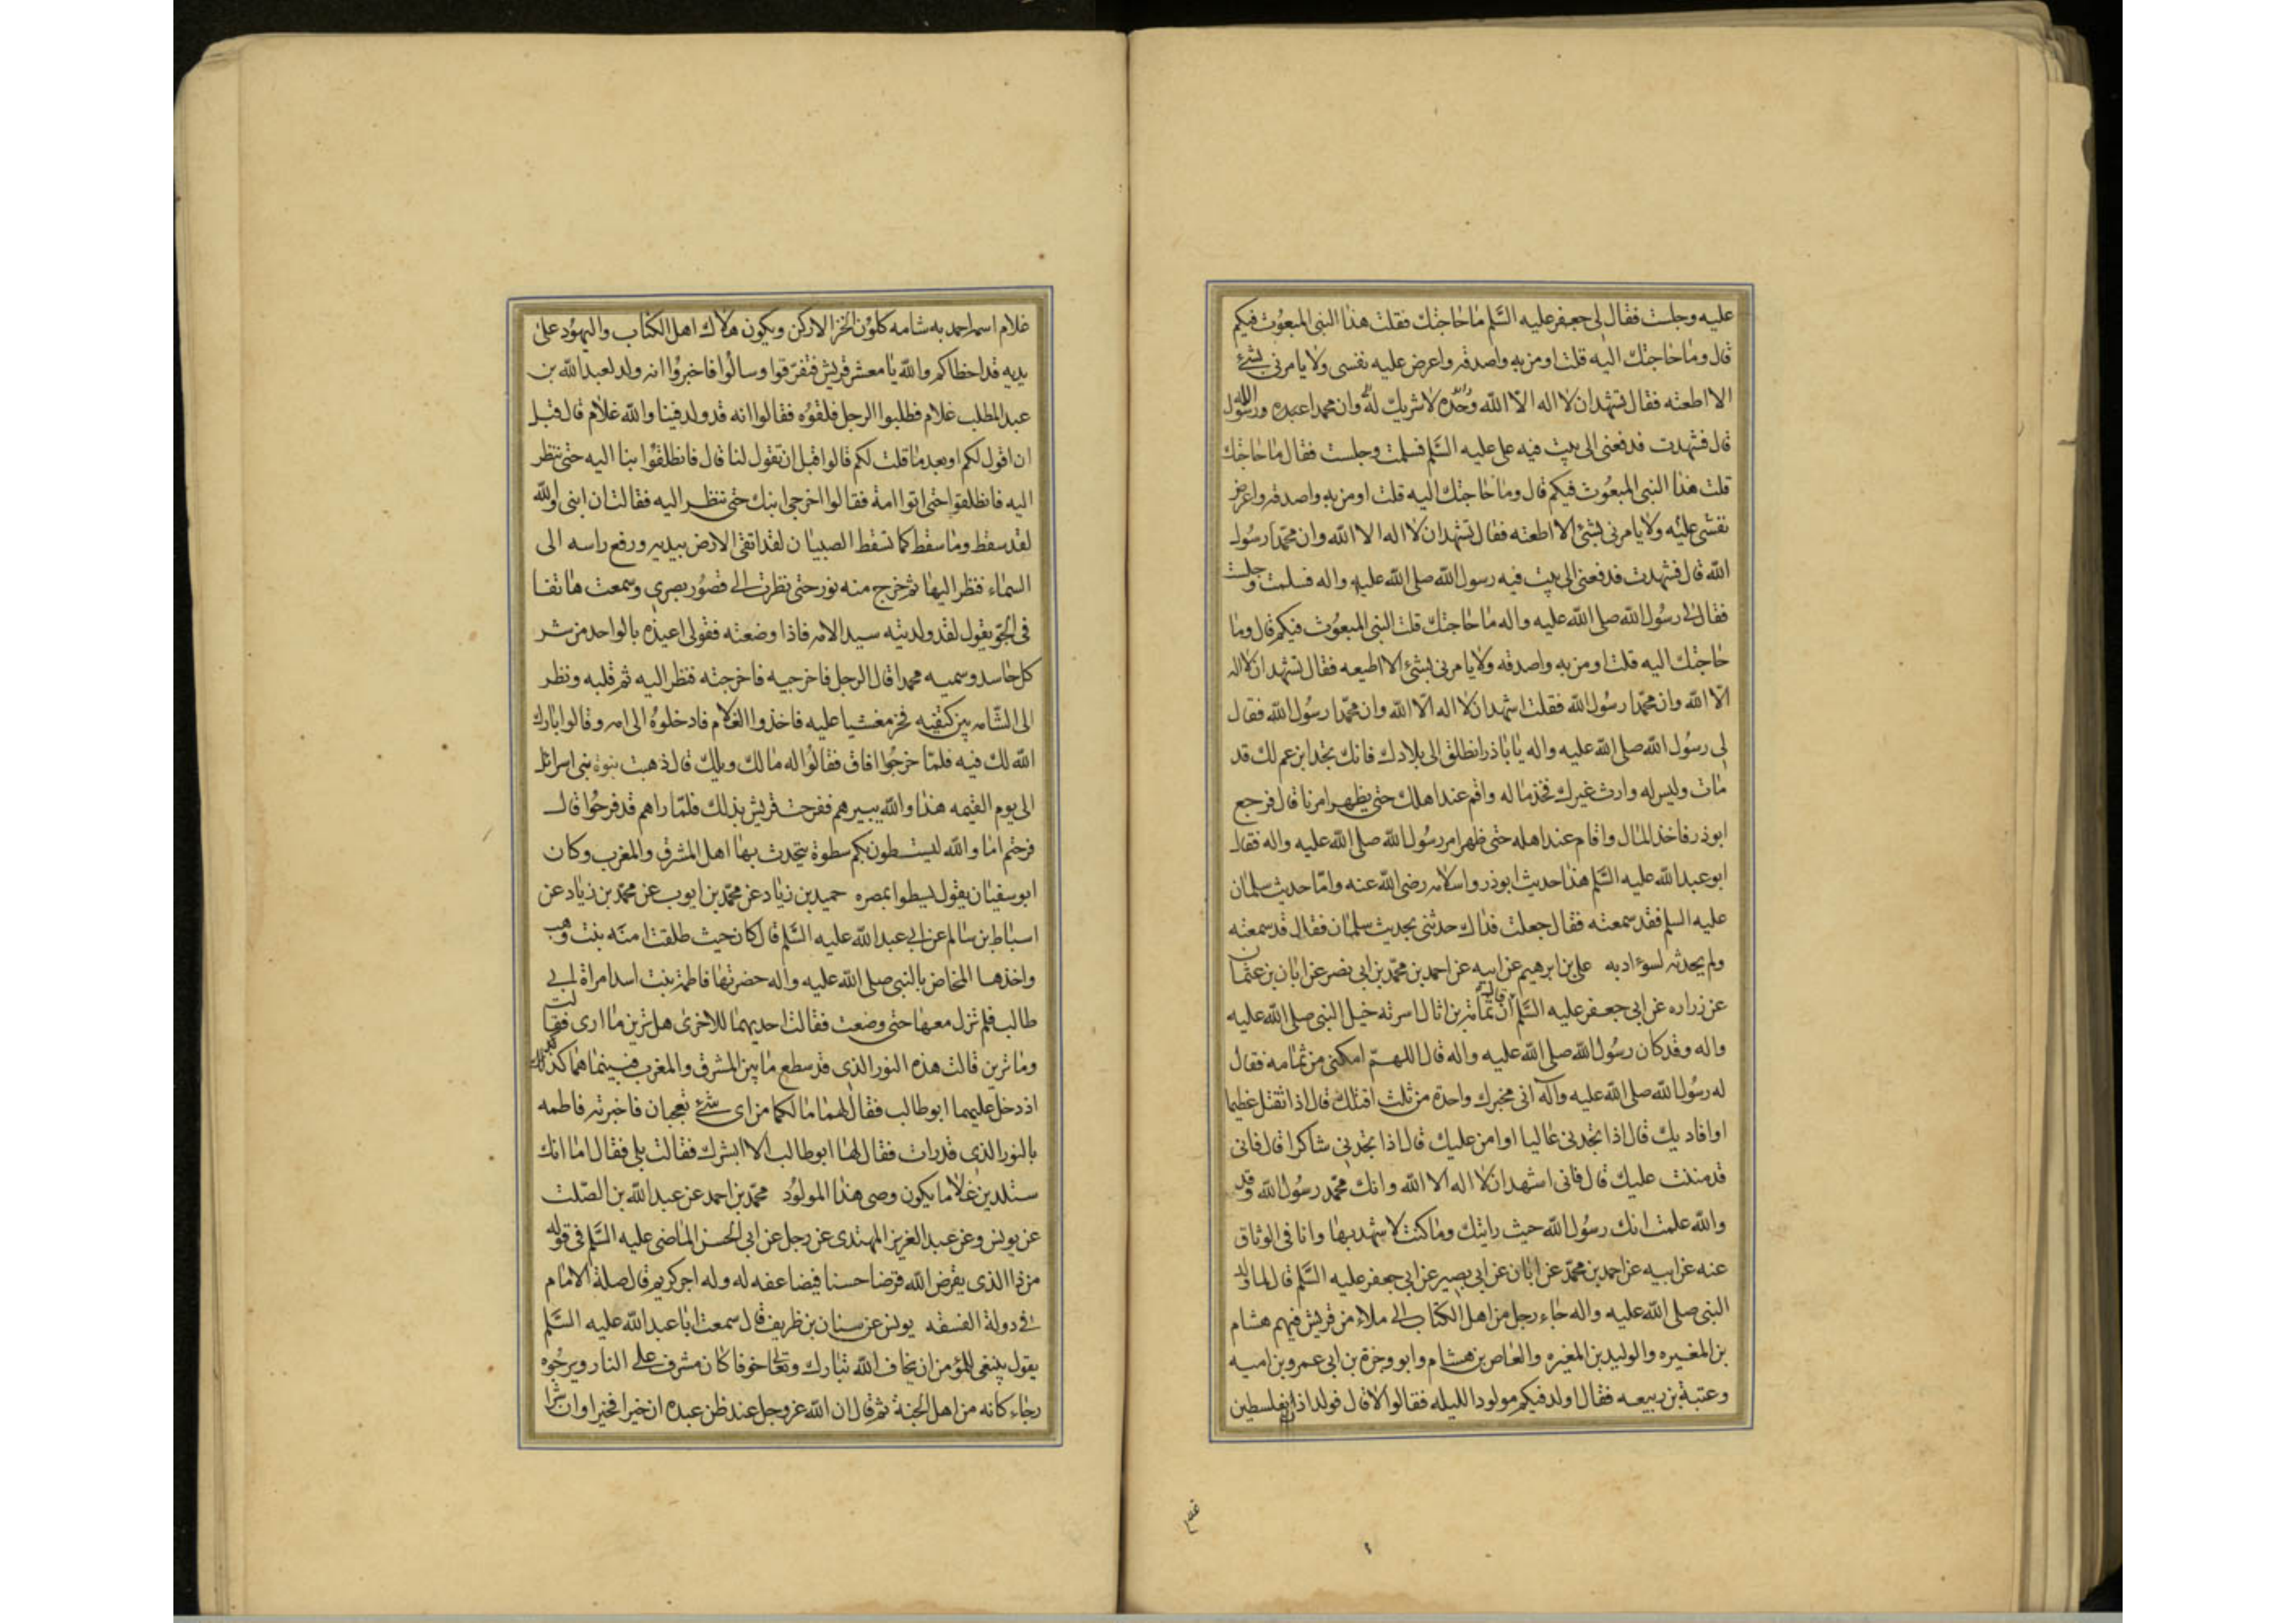 عليه وجلست فقال لى جعفر عليه السَّلم ما حاجتك فقلت هذا النبى المبعوث فيكم
قال وما حاجتك اليه قلت اومن به واصدقه واعرض عليه نفسى ولا يامرنى بشئ
الا اطعته فقال تشهد ان لا اله الّا الله وحده لا شريك له وان محمدا عبده ورسول الله
قال فشهدت فدفعنى الى بيت فيه على عليه السَّلم فسلمت وجلست فقال ما حاجتك
قلت هذا النبى المبعوث فيكم قال وما حاجتك اليه قلت اومن به واصدقه واعرض
نفسى عليه ولا يامرنى بشئ الا اطعته فقال تشهد ان لا اله الا الله وان محمّدا رسُول
الله قال فشهدت فدفعنى الى بيت فيه رسول الله صلى الله عليه واله فسلمت وجلست
فقال لى رسُول الله صلى الله عليه واله ما حاجتك قلت النبى المبعوث فيكم قال وما
حاجتك اليه قلت اومن به واصدقه ولا يامرنى بشئ الا اطيعه فقال تشهد ان لا اله
الّا الله وان محمّدا رسُول الله فقلت اشهد ان لا اله الّا الله وان محمّدا رسُول الله فقال
لى رسُول الله صلى الله عليه واله يا باذر انطلق الى بلادك فانك تجد ابن عم لك قد
مات وليس له وارث غيرك فخذ ماله واقم عند اهلك حتى يظهر امرنا قال فرجع
ابوذر فاخذ المال واقام عند اهله حتى ظهر امر رسُول الله صلى الله عليه واله فقال
ابوعبد الله عليه السَّلم هذا حديث ابوذر واسلامه رضى الله عنه وامّا حديث سلمان
عليه السلم فقد سمعته فقال جعلت فداك حدثنى بحديث سلمان فقال قد سمعته
ولم يحدثه لسوء ادبه على بن ابرهيم عن ابيه عن احمد بن محمّد بن ابى نصر عن ابان بن عثمان
عن زراره عن ابى جعفر عليه السَّلم قال ان ثمامة بن اثال اسرته خيل النبى صلى الله عليه
واله وقد كان رسُول الله صلى الله عليه واله قال اللهمّ امكنى من ثمامه فقال
له رسُول الله صلى الله عليه وآله انى مخيرك واحدة من ثلث اقتلك قال اذا تقتل عظيما
او افاديك قال اذا تجدنى غاليا او امن عليك قال اذا تجدنى شاكرا قال فانى
قد مننت عليك قال فانى اشهد ان لا اله الا الله وانك محمّد رسُول الله وقد
والله علمت انك رسُول الله حيث رايتك وما كنت لا شهد بها وانا فى الوثاق
عنه عن ابيه عن احمد بن محمّد عن ابان عن ابى بصير عن ابى جعفر عليه السَّلم قال لما ولد
النبى صلى الله عليه واله جاء رجل من اهل الكتاب الى ملاء من قريش فيهم هشام
بن المغيره والوليد بن المغيره والعاص بن هشام وابو وجزة بن ابى عمرو بن اميه
وعتبة بن ربيعه فقال اولد فيكم مولود الليله فقالوا لا قال فولد اذا بفلسطين
غلام
غلام اسمه احمد به شامه كلون الخز الادكن ويكون هلاك اهل الكتاب واليهود على
يديه قد اخطاكم والله يا معشر قريش فتفرّقوا وسالُوا فاخبرُوا انه ولد لعبد الله بن
عبد المطلب غلام فطلبوا الرجل فلقوُه فقالوا انه قد ولد فينا والله غلام قال قبل
ان اقول لكم او بعد ما قلت لكم قالوا قبل ان تقول لنا قال فانطلقُوا بنا اليه حتى ننظر
اليه فانطلقوا حتى اتوا امه فقالوا اخرجى ابنك حتى ننظر اليه فقالت ان ابنى والله
لقد سقط وما سقط كما تسقط الصبيان لقد اتقى الارض بيديه ورفع راسه الى
السَّماء فنظر اليها ثم خرج منه نور حتى نظرت الى قصُور بصرى وسمعت هاتفا
فى الجوّ يقول لقد ولدتيه سيد الامه فاذا وضعته فقولى اعيذه بالواحد من شر
كل حاسد وسميه محمدا قال الرجل فاخرجيه فاخرجته فنظر اليه ثم قلبه ونظر
الى الشّامه بين كتفيه فخر مغشيا عليه فاخذوا الغلام فادخلوهُ الى امه وقالوا بارك
الله لك فيه فلمّا خرجُوا افاق فقالُوا له مالك ويلك قال ذهبت نبوة بنى اسرائل
الى يوم القيمه هذا والله يبيرهم ففرحت قريش بذلك فلمّا راهم قد فرحُوا قال
فرحتم اما والله ليسطون بكم سطوة يتحدث بها اهل المشرق والمغرب وكان
ابوسفيان يقول يسطوا بمصره حميد بن زياد عن محمّد بن ايوب عن محمّد بن زياد عن
اسباط بن سالم عن ابى عبد الله عليه السَّلم قال كان حيث طلقت امنَه بنت وهب
واخذها المخاض بالنبى صلى الله عليه واله حضرتها فاطمه بنت اسد امراة ابى
طالب فلم تزل معها حتى وضعت فقالت احديهما للاخرى هل ترين ما ارى فقالت
وما ترين قالت هذه النور الذى قد سطع ما بين المشرق والمغرب فبينما هما كذلك
اذ دخل عليهما ابوطالب فقال لهما مالكما من اى شئ تعجبان فاخبرته فاطمه
بالنور الذى قد رات فقال لها ابوطالب الا ابشرك فقالت بلى فقال اما انك
ستلدين غلاما يكون وصى هذا المولوُد محمّد بن احمد عن عبد الله بن الصّلت
عن يونس وعن عبد العزيز المهتدى عن رجل عن ابى الحسن الماضى عليه السَّلم فى قوله
من ذا الذى يقرض الله قرضا حسنا فيضاعفه له وله اجر كريم قال صلة الامام
فى دولة الفسقه يونس عن سنان بن ظريف قال سمعت ابا عبد الله عليه السَّلم
يقول ينبغى للمؤمن ان يخاف الله تبارك وتعالى خوفا كان مشرف على النار ويرجُوه
رجاء كانه من اهل الجنة ثم قال ان الله عز وجل عند ظن عبده ان خيرا فخيرا وان شرا